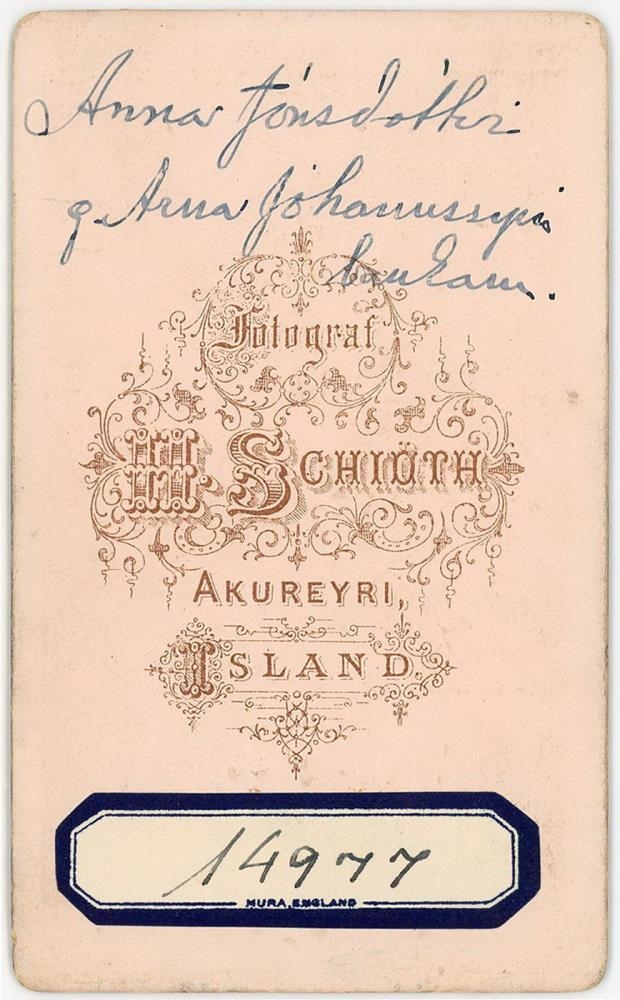 Anna Jónsdóttir
g. Árna Jóhannssyni
bankam.
Fotograf
H. SCHIÖTH
AKUREYRI,
ISLAND.
14977
MURA, ENGLAND